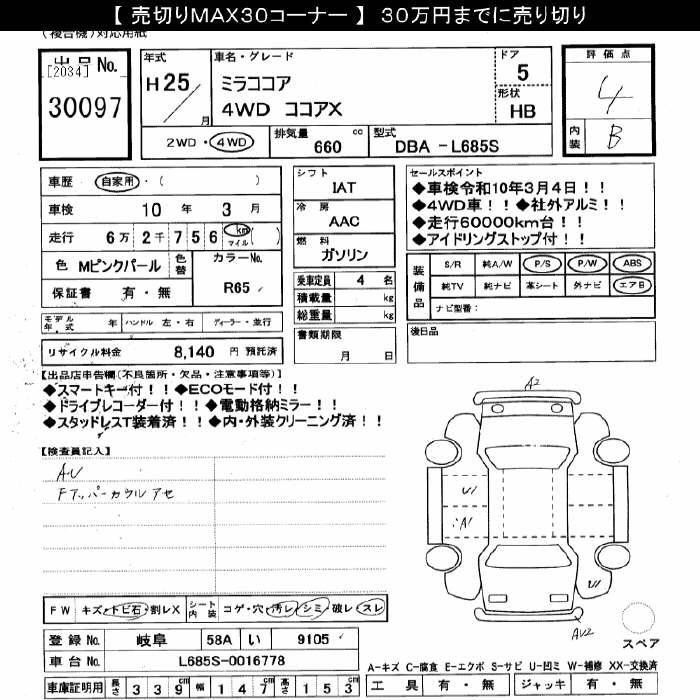 【 売切りMAX30コーナー 】 30万円までに売り切り
(複合機)対応用紙
出品 No.
[2034]
30097
年式
H25/
月
車名・グレード
ミラココア
4WD ココアX
ドア
5
形状
HB
評価点
4
内装
B
2WD・4WD
排気量
660
cc
型式
DBA -L685S
車歴 自家用・( )
車検 10 年 3 月
走行 6万 2千 7 5 6 km マイル( )
色 Mピンクパール
色替
カラーNo.
R65
保証書 有・無
シフト
IAT
冷房
AAC
燃料
ガソリン
乗車定員 4 名
積載量 kg
総重量 kg
セールスポイント
◆車検令和10年3月4日!!
◆4WD車!!◆社外アルミ!!
◆走行60000km台!!
◆アイドリングストップ付!!
装備品
S/R 純A/W P/S P/W ABS
純TV 純ナビ 革シート 外ナビ エアB
ナビ型番:
モデル年式 年 ハンドル 左・右 ディーラー・並行
リサイクル料金 8,140 円 預託済
書類期限
月 日
後日品
【出品店申告欄(不良箇所・欠品・注意事項等)】
◆スマートキー付!!◆ECOモード付!!
◆ドライブレコーダー付!!◆電動格納ミラー!!
◆スタッドレスT装着済!!◆内・外装クリーニング済!!
【検査員記入】
AU
Fアッパーカウル アセ
A2
U1
A1
U1
AU2
スペア
FW キズ・トビ石・割レX
シート内装 コゲ・穴・汚レ・シミ・破レ・スレ
登録 No. 岐阜 58A い 9105
車台 No. L685S-0016778
車庫証明用 長さ 339 cm 幅 147 cm 高さ 153 cm
A-キズ C-腐食 E-エクボ S-サビ U-凹ミ W-補修 XX-交換済
工具 有・無 ジャッキ 有・無